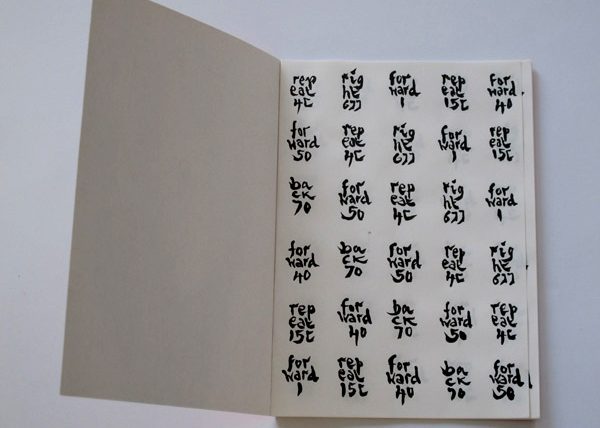 rep rig for rep for
eat ht ward eat ward
4[ 6]] 1 15[ 40
for rep rig for rep
ward eat ht ward eat
50 4[ 6]] 1 15[
ba for rep rig for
ck ward eat ht ward
70 50 4[ 6]] 1
for ba for rep rig
ward ck ward eat ht
40 70 50 4[ 6]]
rep for ba for rep
eat ward ck ward eat
15[ 40 70 50 4[
for rep for ba for
ward eat ward ck ward
1 15[ 40 70 50